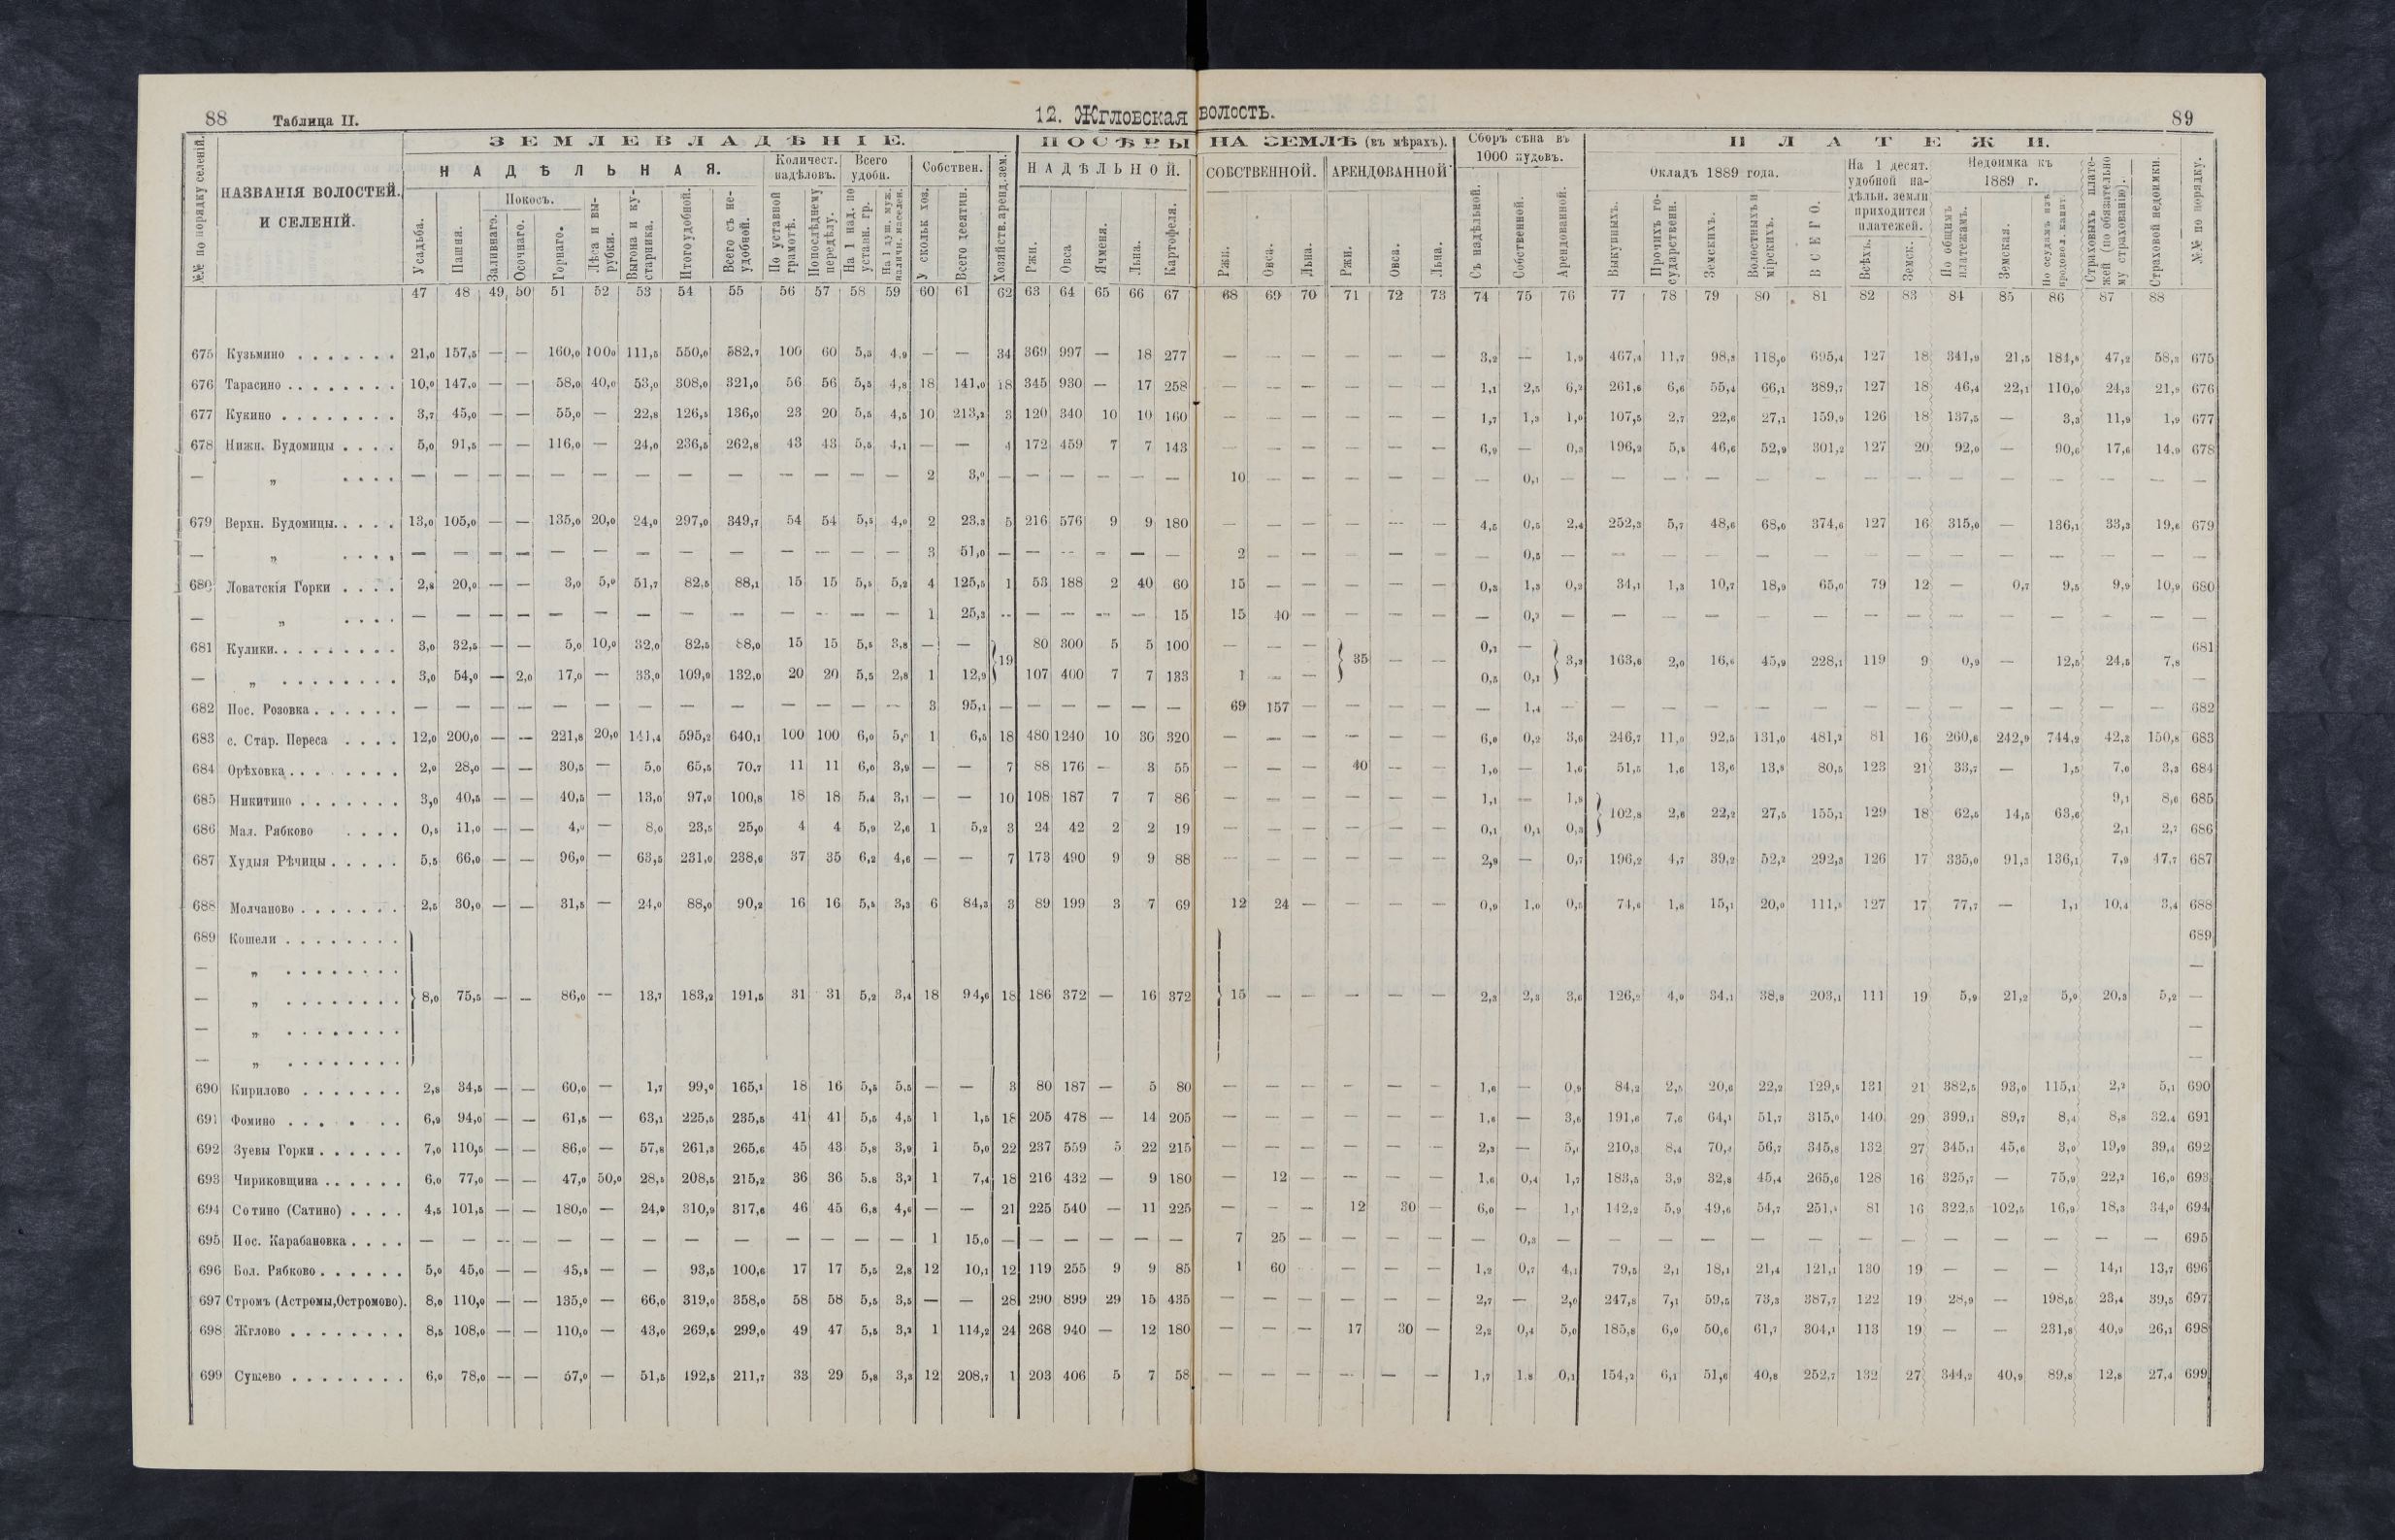 88 Таблица II. 12. Жгловская волость. 89
ЗЕМЛЕВЛАДѢНІЕ. ПОСѢВЫ НА ЗЕМЛѢ (въ мѣрахъ). Сборъ сѣна въ 1000 пудовъ. ПЛАТЕЖИ.
№№ по порядку селеній. НАЗВАНІЯ ВОЛОСТЕЙ И СЕЛЕНІЙ. НАДѢЛЬНАЯ. Количест. надѣловъ. Всего удобн. Собствен. Хозяйств. аренд. зем. НАДѢЛЬНОЙ. СОБСТВЕННОЙ. АРЕНДОВАННОЙ Окладъ 1889 года. На 1 десят. удобной надѣльн. земли приходится платежей. Недоимка къ 1889 г. Страховыхъ платежей (по обязательному страхованію). Страховой недоимки. №№ по порядку.
Усадьба. Пашня. Покосъ. Заливнаго. Осочнаго. Горнаго. Лѣса и вырубки. Выгона и кустарника. Итого удобной. Всего съ неудобной. По уставной грамотѣ. По послѣднему передѣлу. На 1 над. по уставн. гр. На 1 душ. муж. наличн. населен. У скольк хоз. Всего десятин. Ржи. Овса Ячменя. Льна. Картофеля. Ржи. Овса. Льна. Ржи. Овса. Льна. Съ надѣльной. Собственной. Арендованной. Выкупныхъ. Прочихъ государственн. Земскихъ. Волостныхъ и мірскихъ. ВСЕГО. Всѣхъ. Земск. По общимъ платежамъ. Земская. По ссудамъ изъ продовол. капит.
47 48 49 50 51 52 53 54 55 56 57 58 59 60 61 62 63 64 65 66 67 68 69 70 71 72 73 74 75 76 77 78 79 80 81 82 83 84 85 86 87 88
675 Кузьмино 21,0 157,5 — — 160,0 100,0 111,5 550,0 582,7 100 60 5,5 4,9 — — 34 369 997 — 18 277 — — — — — — 3,2 — 1,9 467,4 11,7 98,3 118,0 695,4 127 18 341,9 21,5 184,8 47,2 58,3 675
676 Тарасино 10,0 147,0 — — 58,0 40,0 53,0 308,0 321,0 56 56 5,5 4,8 18 141,0 18 345 930 — 17 258 — — — — — — 1,1 2,5 6,2 261,6 6,6 55,4 66,1 389,7 127 18 46,4 22,1 110,0 24,3 21,9 676
677 Кукино 3,7 45,0 — — 55,0 — 22,8 126,5 136,0 23 20 5,5 4,5 10 213,2 3 120 340 10 10 160 — — — — — — 1,7 1,3 1,0 107,5 2,7 22,6 27,1 159,9 126 18 137,5 — 3,3 11,9 1,9 677
678 Нижн. Будомицы 5,0 91,5 — — 116,0 — 24,0 236,5 262,8 43 43 5,5 4,1 — — 4 172 459 7 7 143 — — — — — — 6,9 — 0,3 196,2 5,5 46,6 52,9 301,2 127 20 92,0 — 90,6 17,6 14,9 678
— „ — — — — — — — — — — — — — 2 3,0 — — — — — — 10 — — — — — — 0,1 — — — — — — — — — — — — — —
679 Верхн. Будомицы 13,0 105,0 — — 135,0 20,0 24,0 297,0 349,7 54 54 5,5 4,0 2 23,3 5 216 576 9 9 180 — — — — — — 4,5 0,5 2,4 252,3 5,7 48,6 68,0 374,6 127 16 315,0 — 136,1 33,3 19,6 679
— „ — — — — — — — — — — — — — 3 51,0 — — — — — — 2 — — — — — — 0,5 — — — — — — — — — — — — — —
680 Ловатскія Горки 2,8 20,0 — — 3,0 5,0 51,7 82,5 88,1 15 15 5,5 5,2 4 125,5 1 53 188 2 40 60 15 — — — — — 0,3 1,3 0,2 34,1 1,3 10,7 18,9 65,0 79 12 — 0,7 9,5 9,9 10,9 680
— „ — — — — — — — — — — — — — 1 25,3 — — — — — 15 15 40 — — — — — 0,2 — — — — — — — — — — — — — —
681 Кулики 3,0 32,5 — — 5,0 10,0 32,0 82,5 88,0 15 15 5,5 3,8 — — 19 80 300 5 5 100 — — — 35 — — 0,1 — 3,2 163,6 2,0 16,6 45,9 228,1 119 9 0,9 — 12,5 24,5 7,8 681
— „ 3,0 54,0 — 2,0 17,0 — 33,0 109,0 132,0 20 20 5,5 2,8 1 12,9 107 400 7 7 133 1 — — 0,5 0,1 —
682 Пос. Розовка — — — — — — — — — — — — — 3 95,1 — — — — — — 69 157 — — — — — 1,4 — — — — — — — — — — — — — 682
683 с. Стар. Переса 12,0 200,0 — — 221,8 20,0 141,4 595,2 640,1 100 100 6,0 5,0 1 6,5 18 480 1240 10 30 320 — — — — — — 6,0 0,2 3,6 246,7 11,0 92,5 131,0 481,2 81 16 260,6 242,9 744,2 42,3 150,8 683
684 Орѣховка 2,0 28,0 — — 30,5 — 5,0 65,5 70,7 11 11 6,0 3,9 — — 7 88 176 — 3 55 — — — 40 — — 1,0 — 1,6 51,5 1,6 13,6 13,8 80,5 123 21 33,7 — 1,5 7,0 3,3 684
685 Никитино 3,0 40,5 — — 40,5 — 13,0 97,0 100,8 18 18 5,4 3,1 — — 10 108 187 7 7 86 — — — — — — 1,1 — 1,8 102,8 2,6 22,2 27,5 155,1 129 18 62,5 14,5 63,6 9,1 8,0 685
686 Мал. Рябково 0,5 11,0 — — 4,0 — 8,0 23,5 25,0 4 4 5,9 2,6 1 5,2 3 24 42 2 2 19 — — — — — — 0,1 0,1 0,3 2,1 2,7 686
687 Худыя Рѣчицы 5,5 66,0 — — 96,0 — 63,5 231,0 238,6 37 35 6,2 4,6 — — 7 173 490 9 9 88 — — — — — — 2,9 — 0,7 196,2 4,7 39,2 52,2 292,3 126 17 335,0 91,3 136,1 7,9 47,7 687
688 Молчаново 2,5 30,0 — — 31,5 — 24,0 88,0 90,2 16 16 5,5 3,3 6 84,3 3 89 199 3 7 69 12 24 — — — — 0,9 1,0 0,5 74,6 1,8 15,1 20,0 111,5 127 17 77,7 — 1,1 10,4 3,4 688
689 Кошели 689
— „ —
— „ 8,0 75,5 — — 86,0 — 13,7 183,2 191,5 31 31 5,2 3,4 18 94,6 18 186 372 — 16 372 15 — — — — — 2,3 2,3 3,6 126,2 4,0 34,1 38,8 203,1 111 19 5,9 21,2 5,0 20,3 5,2 —
— „ —
— „ —
690 Кирилово 2,8 34,5 — — 60,0 — 1,7 99,0 165,1 18 16 5,5 5,5 — — 3 80 187 — 5 80 — — — — — — 1,6 — 0,9 84,2 2,5 20,6 22,2 129,5 131 21 382,5 93,0 115,1 2,2 5,1 690
691 Фомино 6,9 94,0 — — 61,5 — 63,1 225,5 235,5 41 41 5,5 4,5 1 1,5 18 205 478 — 14 205 — — — — — — 1,6 — 3,6 191,6 7,6 64,1 51,7 315,0 140 29 399,1 89,7 8,4 8,8 32,4 691
692 Зуевы Горки 7,0 110,5 — — 86,0 — 57,8 261,3 265,6 45 43 5,8 3,9 1 5,0 22 237 559 5 22 215 — — — — — — 2,3 — 5,1 210,3 8,4 70,4 56,7 345,8 132 27 345,1 45,6 3,0 19,9 39,4 692
693 Чириковщина 6,0 77,0 — — 47,0 50,0 28,5 208,5 215,2 36 36 5,8 3,2 1 7,4 18 216 432 — 9 180 — 12 — — — — 1,6 0,4 1,7 183,5 3,9 32,8 45,4 265,6 128 16 325,7 — 75,9 22,2 16,0 693
694 Сотино (Сатино) 4,5 101,5 — — 180,0 — 24,9 310,9 317,6 46 45 6,8 4,6 — — 21 225 540 — 11 225 — — — 12 30 — 6,0 — 1,1 142,2 5,9 49,6 54,7 251,8 81 16 322,5 102,5 16,9 18,3 34,0 694
695 Пос. Карабановка — — — — — — — — — — — — — 1 15,0 — — — — — — 7 25 — — — — — 0,3 — — — — — — — — — — — — — 695
696 Бол. Рябково 5,0 45,0 — — 45,5 — — 93,5 100,6 17 17 5,5 2,8 12 10,1 12 119 255 9 9 85 1 60 — — — — 1,2 0,7 4,1 79,5 2,1 18,1 21,4 121,1 130 19 — — — 14,1 13,7 696
697 Стромъ (Астромы, Остромово). 8,0 110,0 — — 135,0 — 66,0 319,0 358,0 58 58 5,5 3,5 — — 28 290 899 29 15 435 — — — — — — 2,7 — 2,0 247,8 7,1 59,5 73,3 387,7 122 19 28,9 — 198,5 23,4 39,5 697
698 Жглово 8,5 108,0 — — 110,0 — 43,0 269,5 299,0 49 47 5,5 3,2 1 114,2 24 268 940 — 12 180 — — — 17 30 — 2,2 0,4 5,0 185,8 6,0 50,6 61,7 304,1 113 19 — — 231,8 40,9 26,1 698
699 Сущево 6,0 78,0 — — 57,0 — 51,5 192,5 211,7 33 29 5,8 3,3 12 208,7 1 203 406 5 7 58 — — — — — — 1,7 1,8 0,1 154,2 6,1 51,6 40,8 252,7 132 27 344,2 40,9 89,8 12,8 27,4 699